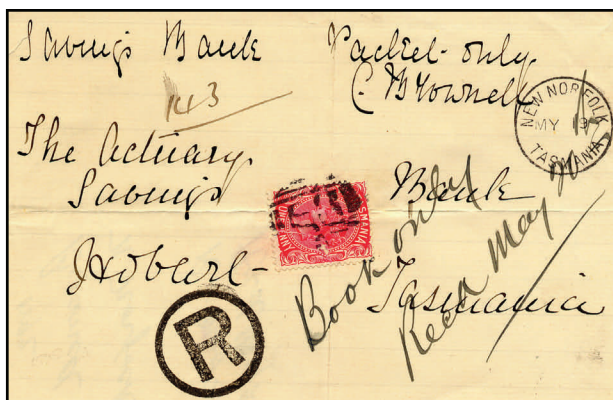 Savings Bank
Packet only
C. Brownell
143
NEW NORFOLK
MY 19
TASMANIA
The Actuary
Savings Bank
Hobart
Tasmania
Book only
Recd May
R